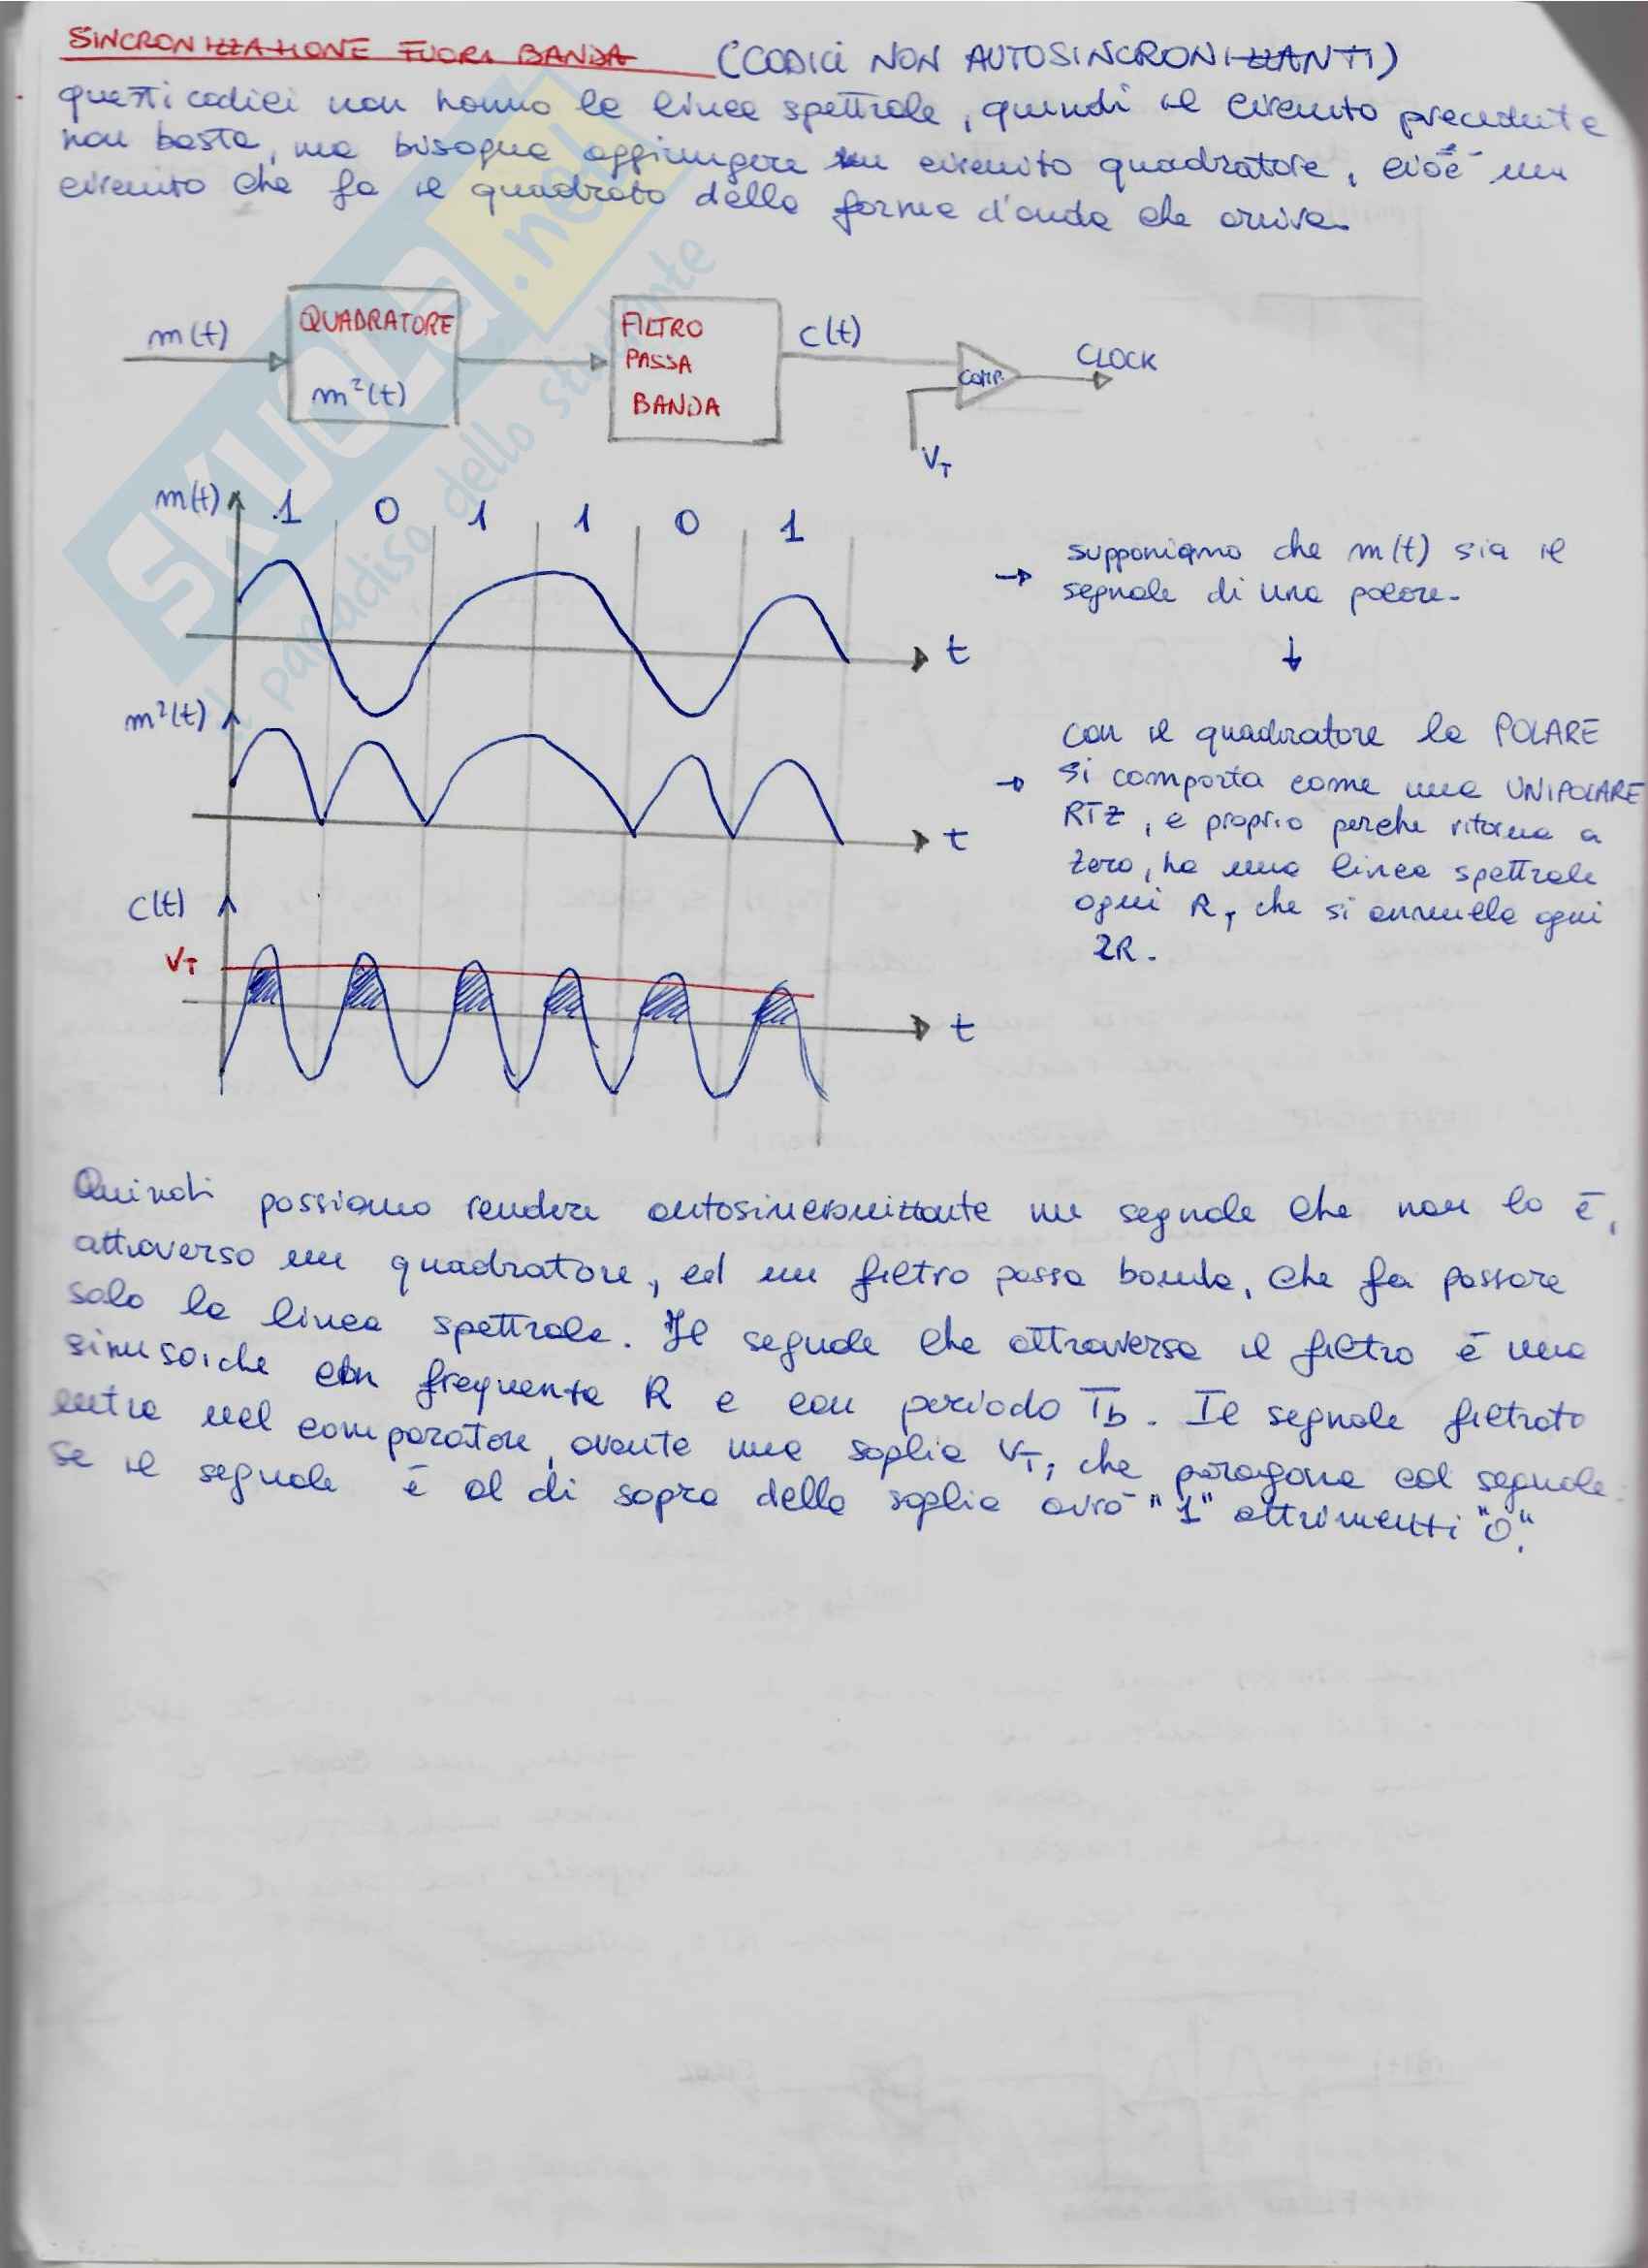 SINCRONIZZAZIONE FUORI BANDA (CODICI NON AUTOSINCRONIZZANTI)
questi codici non hanno la linea spettrale, quindi il circuito precedente
non basta, ma bisogna aggiungere un circuito quadratore, cioè un
circuito che fa il quadrato della forma d'onda che arriva.
m(t) QUADRATORE m²(t) FILTRO PASSA BANDA c(t) COMP. CLOCK
V_T
m(t) 1 0 1 1 0 1
t
→ supponiamo che m(t) sia il
segnale di una polare.
↓
m²(t)
t
→ con il quadratore la POLARE
si comporta come una UNIPOLARE
RTZ, e proprio perche ritorna a
zero, ha una linea spettrale
ogni R, che si annulla ogni
2R.
c(t)
V_T
t
Quindi possiamo rendere autosincronizzante un segnale che non lo è,
attraverso un quadratore, ed un filtro passa banda, che fa passare
solo la linea spettrale. Il segnale che attraversa il filtro è una
sinusoiche con frequenza R e con periodo Tb. Il segnale filtrato
entra nel comparatore, avente una soglia V_T, che paragona col segnale:
se il segnale è al di sopra della soglia avrò "1" altrimenti "0".
SKUOLA.net
il paradiso dello studente